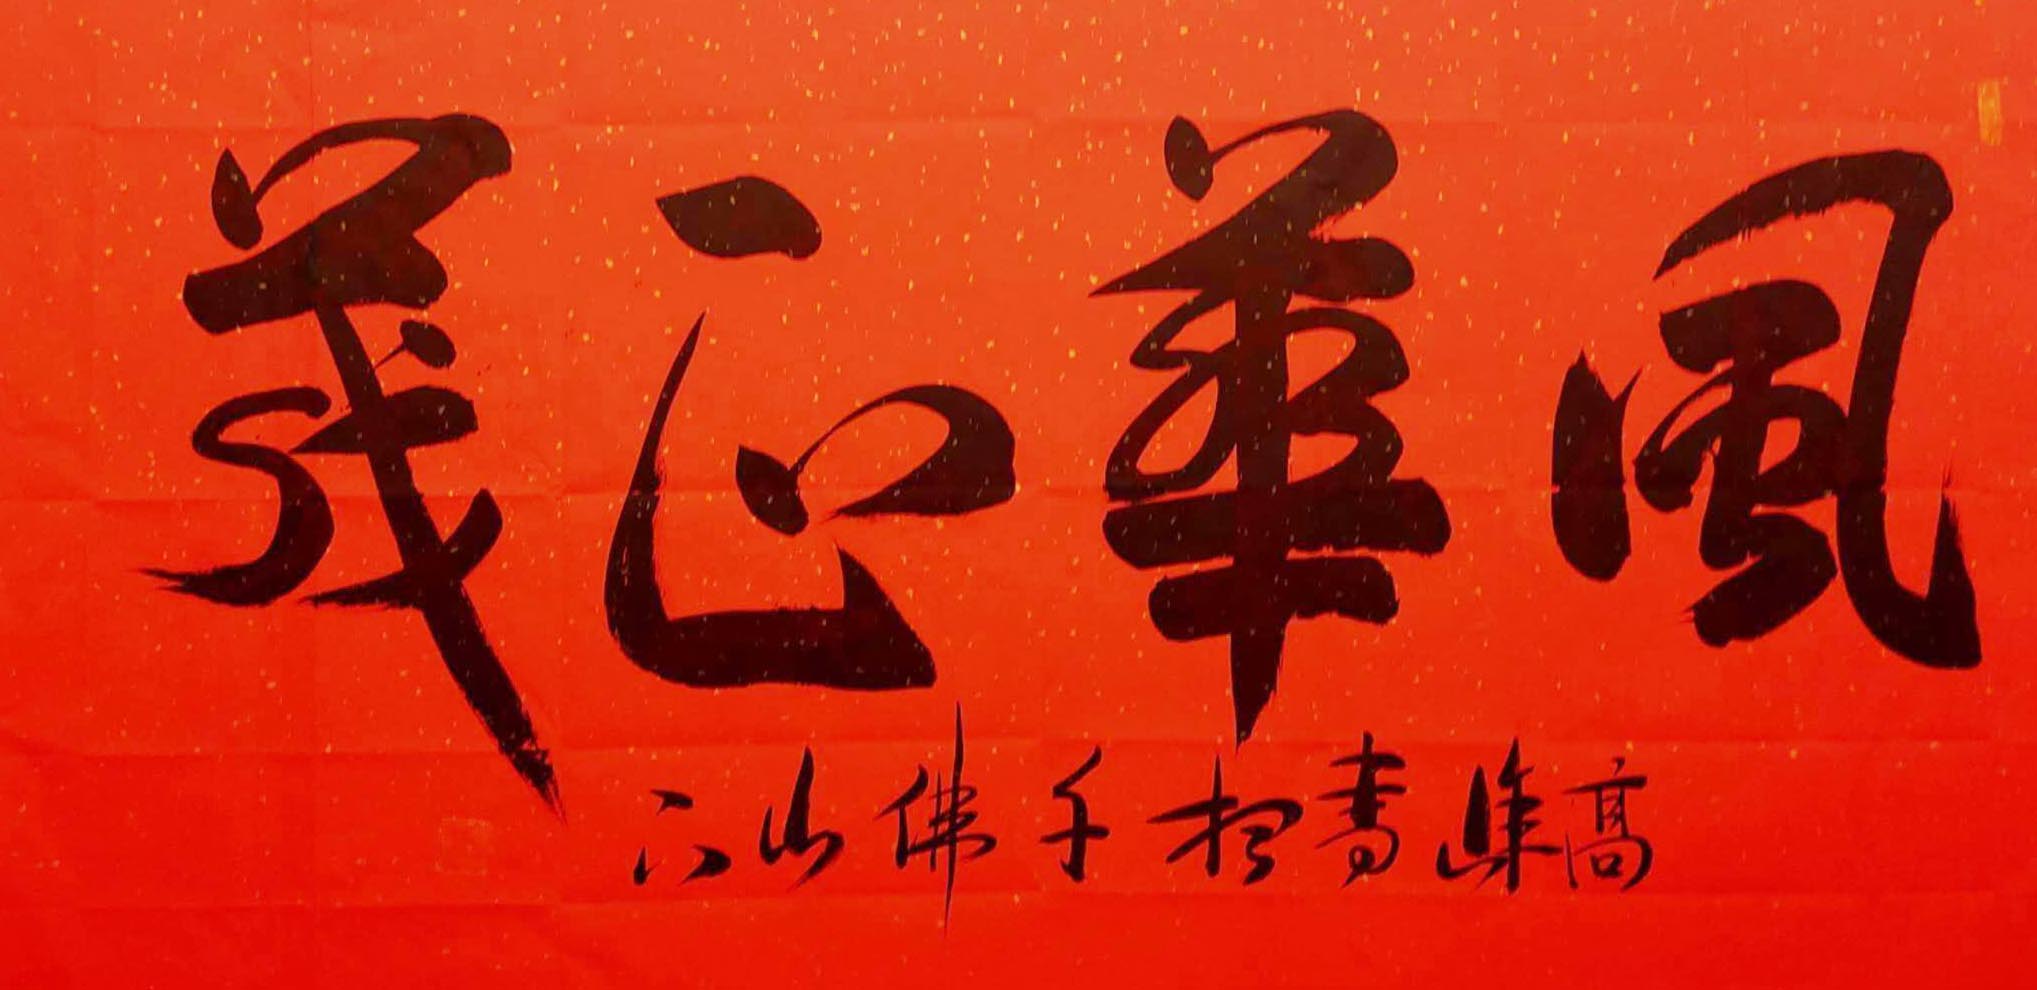 風華正茂
高峰書於千佛山下